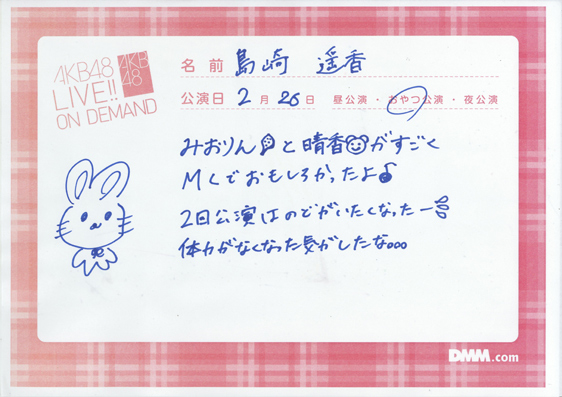 AKB48
LIVE!!
ON DEMAND
AKB
48
名前 島崎 遥香
公演日 2月 26日 昼公演・おやつ公演・夜公演
みおりんと晴香がすごく
MCでおもしろかったよ♪
2日公演はのどがいたくなったー
体力がなくなった気がしたな。。。
DMM.com